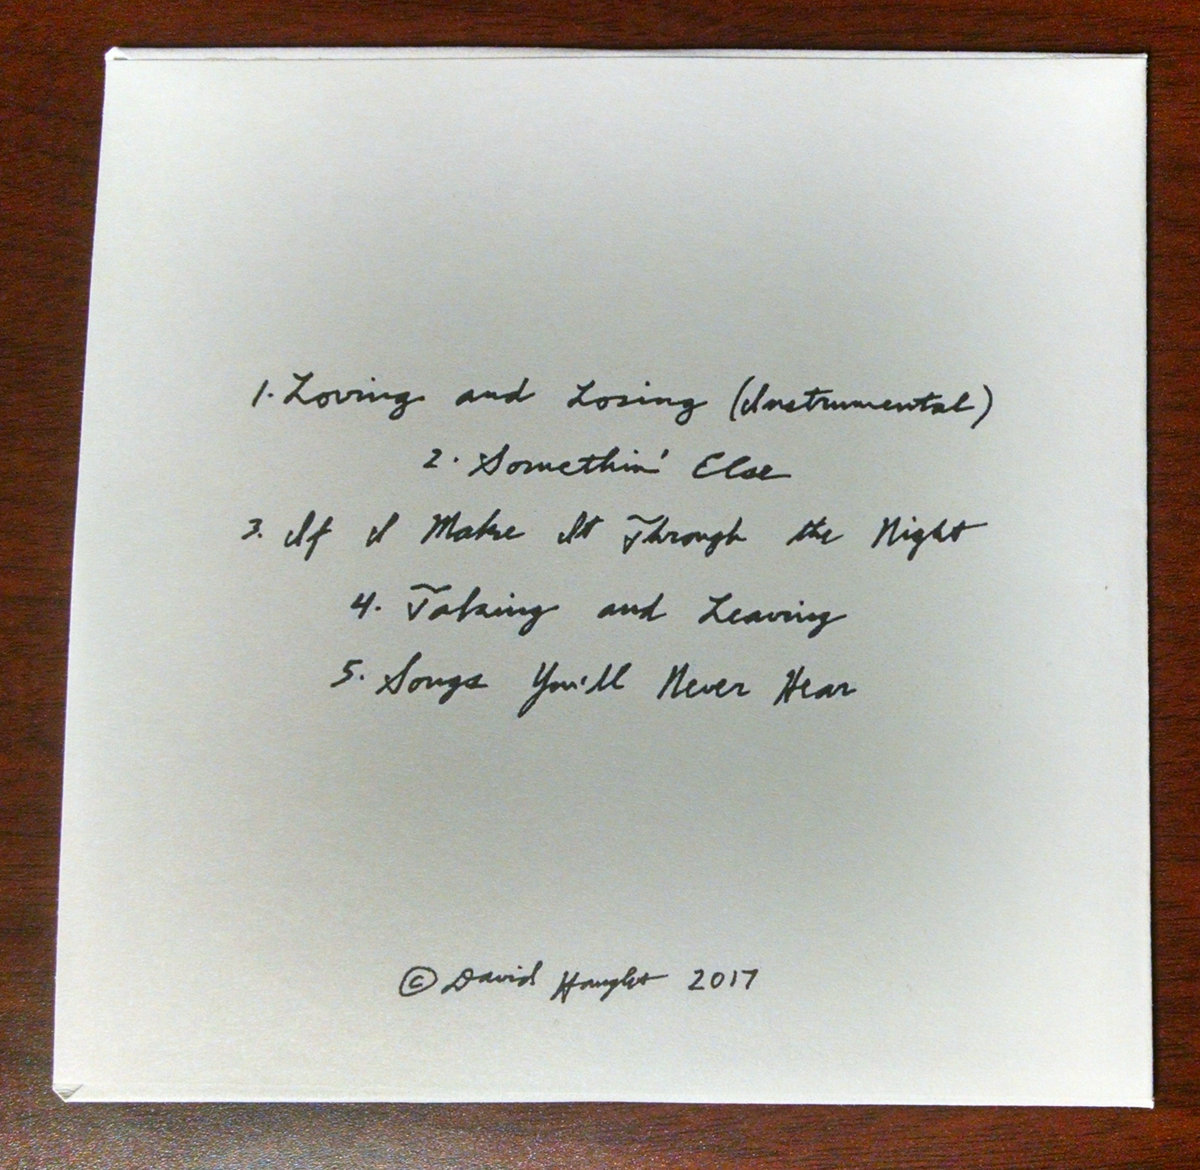 1. Loving and Losing (Instrumental)
2. Somethin' Else
3. If I Make It Through the Night
4. Taking and Leaving
5. Songs You'll Never Hear
© David Haught 2017